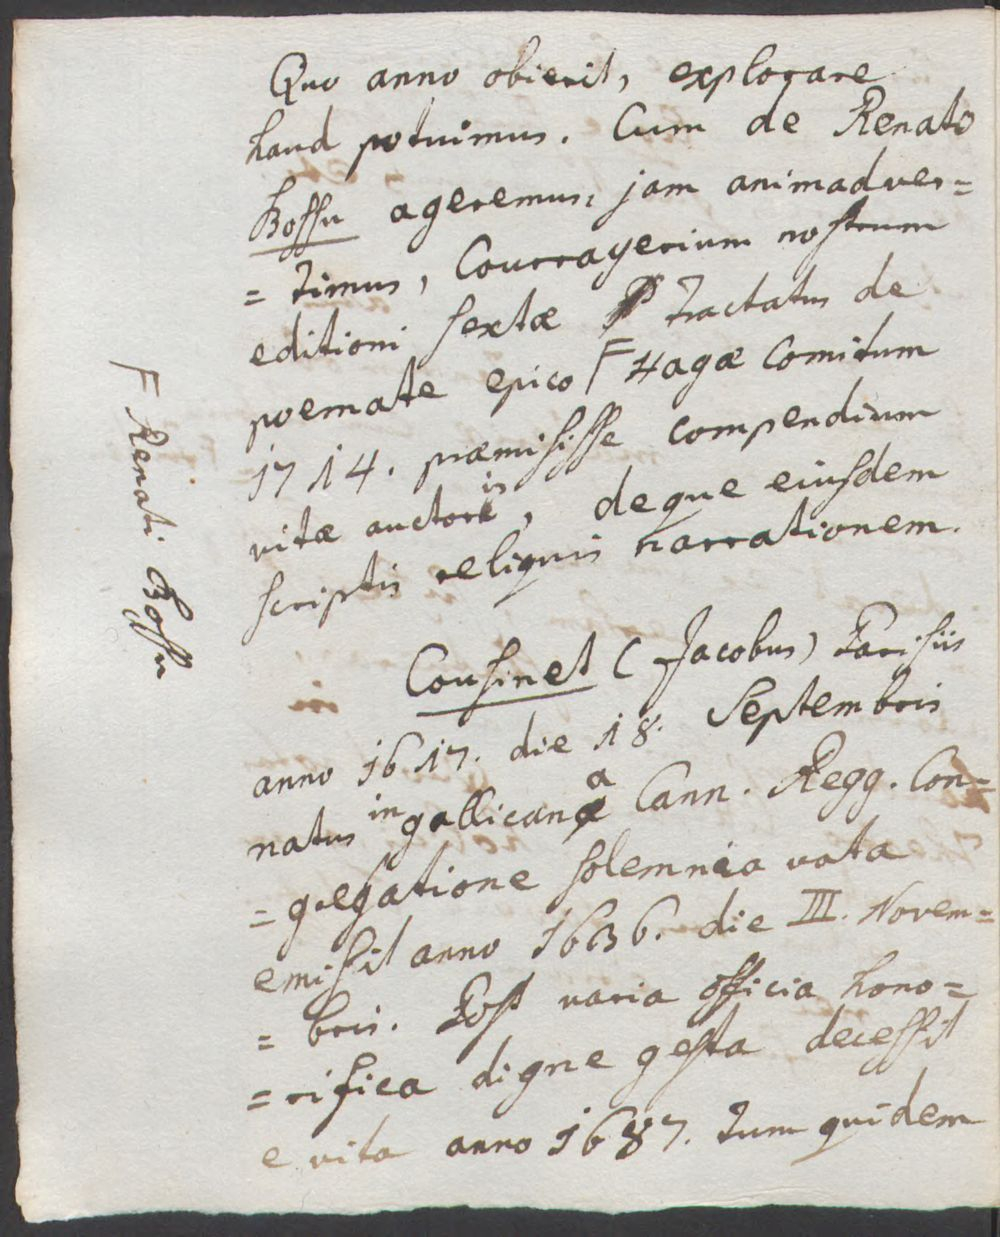 Quo anno obierit, explorare
haud potuimus. Cum de Renato
Bossu ageremus, jam animadver=
=timus, Courrayerium nostrum
editioni sextæ Tractatus de
poemate epico F Hagæ Comitum
1714. præmisisse compendium
vitæ auctoris, deque eiusdem
scriptis reliquis narrationem.
F Renati Bossu
Cousinet (Jacobus) Parisiis
anno 1617. die 18. Septembris
natus in gallicana Cann. Regg. Con=
=gregatione solemnia vota
emisit anno 1636. die III. Novem=
=bris. Post varia officia hono=
=rifica digne gesta decessit
e vita anno 1687. tum quidem